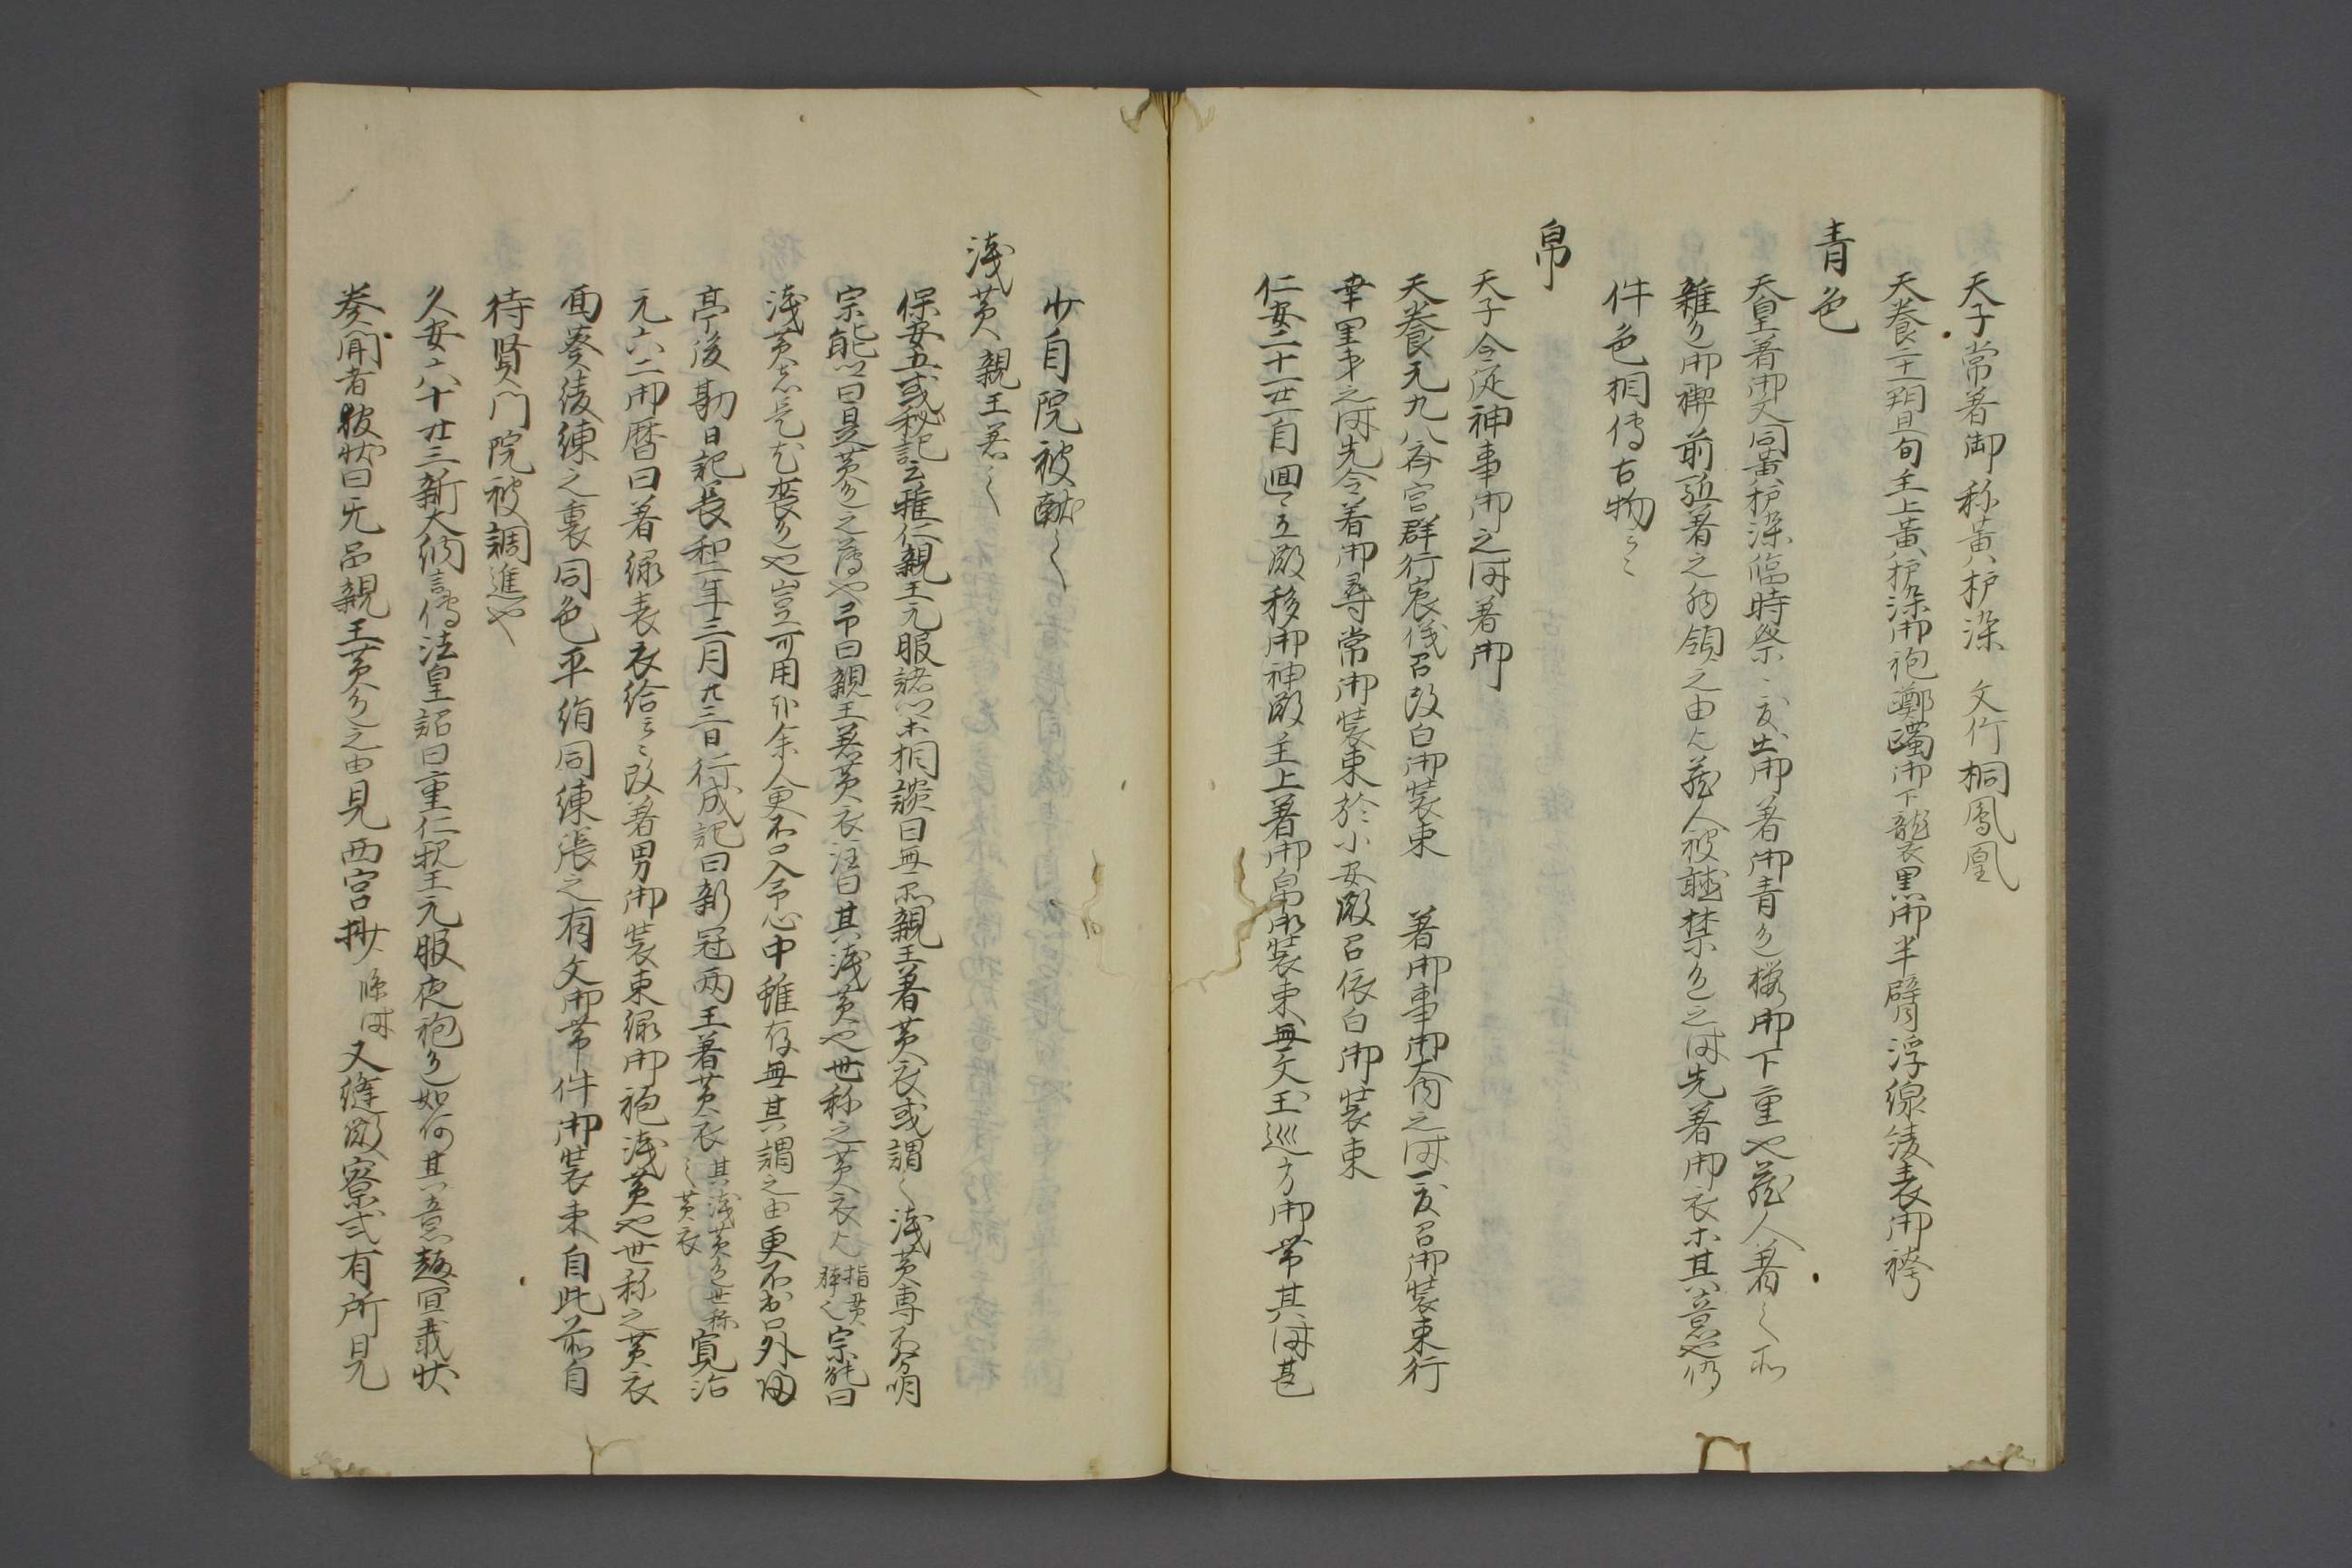 天子常着御称黄櫨染 文竹桐鳳凰
天養二十一朔旦旬主上黄櫨染御袍躑躅御下襲黒御半臂浮線綾表御袴
青色
天皇着御文同黄櫨染臨時祭
出御着御青色桜御下重也蔵人着之
雑色御禊前駈着之為領之由蔵人被聴禁色之時先着御衣其意也仍
件色相傳古物云々
帛
天子令従神事御之時着御
天養元九八斎宮群行宸儀召改白御装束 着御事御大内之時召御装束行
幸里第之時先令着御尋常御装束於小安殿召依白御装束
仁安二十一廿一自廻立殿移御神殿主上着御帛御装束無文玉巡方御帯其時甚
少自院被献之
浅黄 親王着之
保安五或秘記云雅仁親王元服諸卿相談曰無品親王着黄衣或謂之浅黄専不分明
宗能卿曰是黄色之薄也予曰親王着黄衣注曰其浅黄也世称之黄衣 指黄 宗能曰
浅黄喪色也豈可用哉余更不口入予心中雖存無其謂之由更不出口外帰
亭後勘日記長和二年三月廿三日行成記曰新冠両王着黄衣 其浅黄色世称之黄衣 寛治
元六二御暦曰着緑表衣給云々改着男御装束緑御袍浅黄也世称之黄衣
面葵綾練之裏同色平絹同練張之有文御帯件御装束自此前自
待賢門院被調進也
久安六十廿三新大納言傳法皇詔曰重仁親王元服夜袍色如何其意趣宜載状
奏聞者報状曰无品親王黄色之由見西宮抄 又縫殿寮式有所見